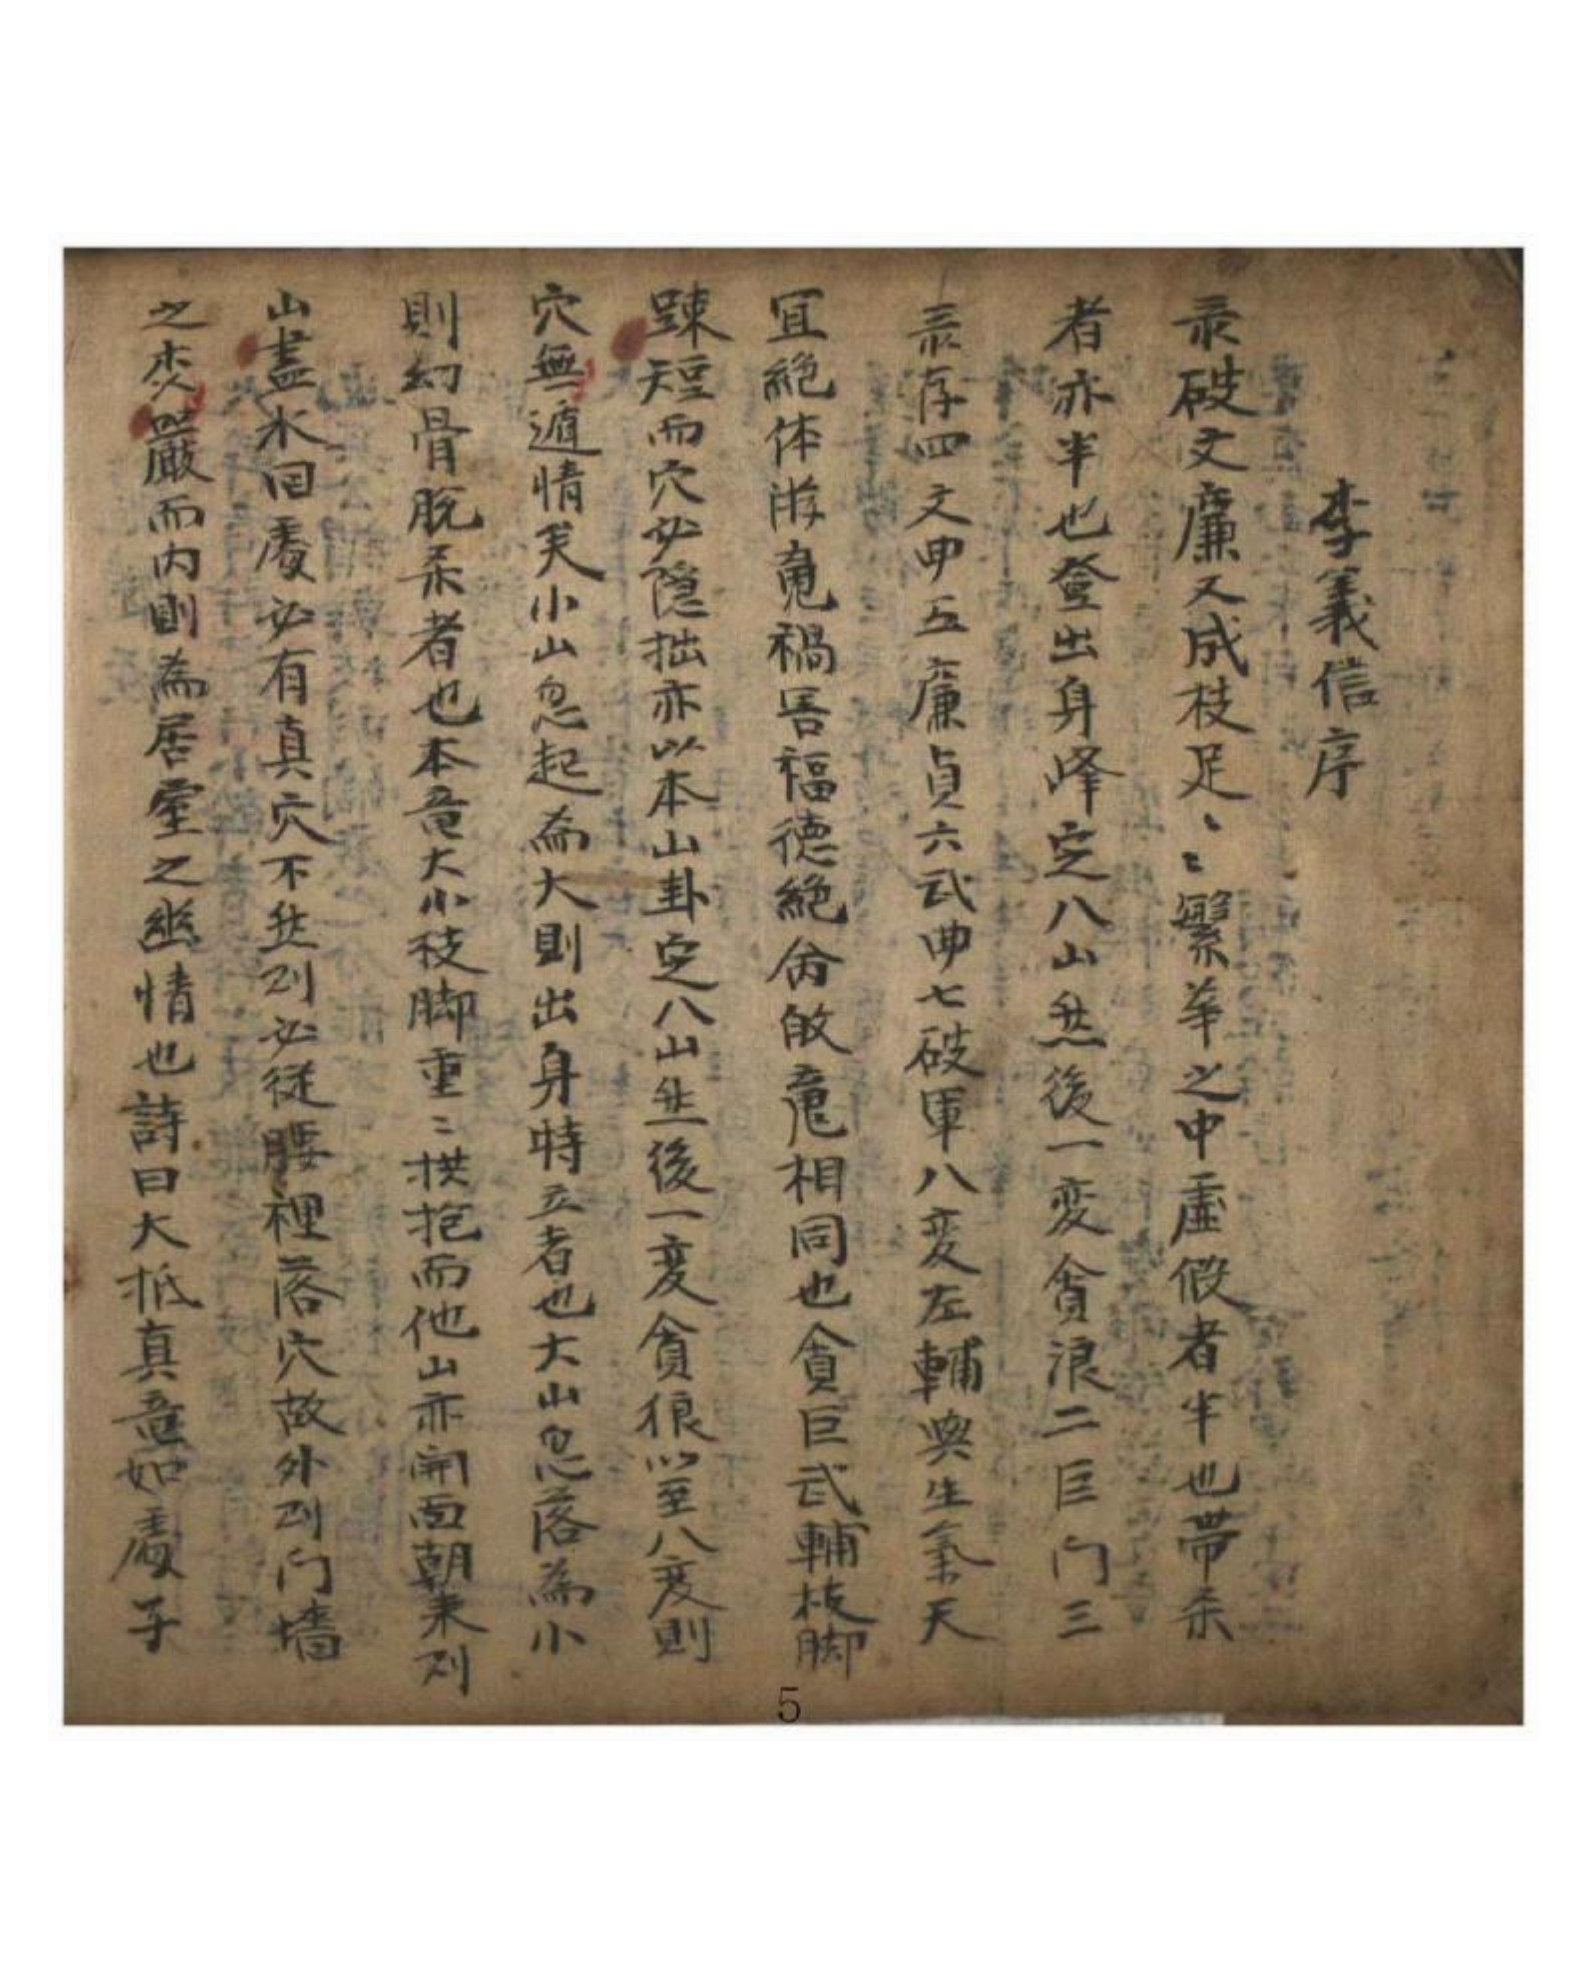 李義信序
彔破文廉又成枝足〻〻繁華之中虛假者半也帶杀
者亦半也登出身峰定八山然後一変貪浪二巨门三
彔存四文曲五廉貞六武曲七破軍八変左輔與生氣天
冝絶体游䰟禍害福德絶命故竜相同也貪巨武輔枝脚
踈短而穴必隐拙亦以本山卦定八山然後一変貪狼以至八変則
穴無遁情矣小山忽起為大則出身特立者也大山忽落為小
則幻骨脫杀者也本竜大小枝脚重〻拱抱而他山亦開面朝来則
山盡水回處必有真穴不然則必従腰裡落穴故外則门墻
之嚴而内則為居室之幽情也詩曰大抵真竜如處子
5